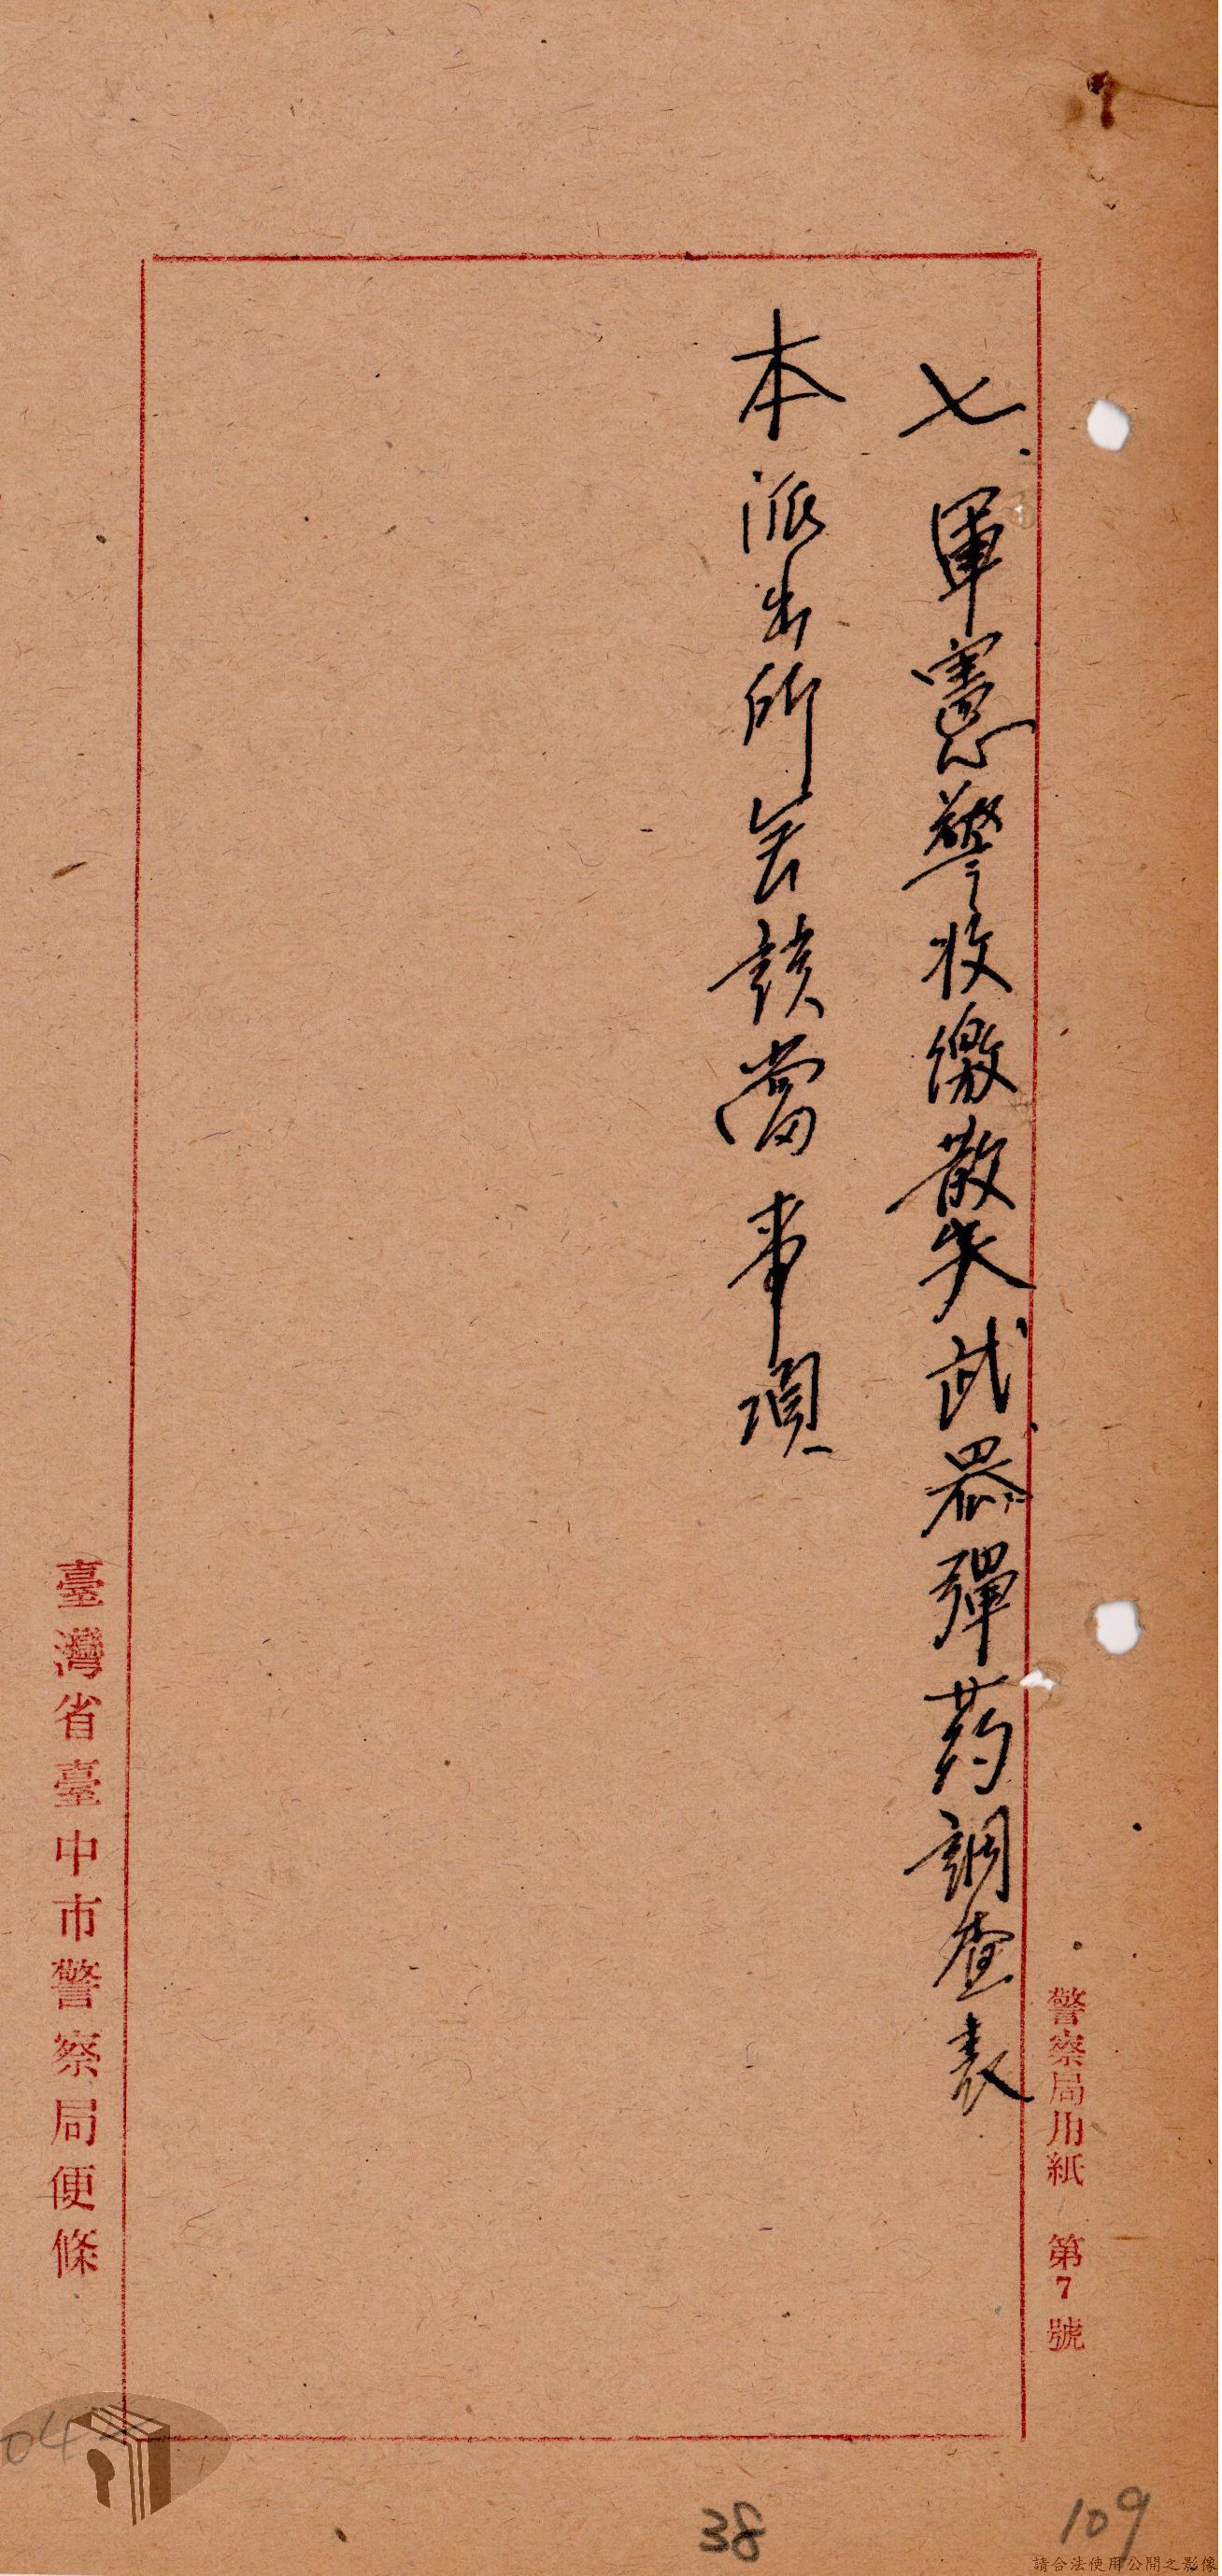 警察局用紙 第7號
七.軍憲警收繳散失武器彈药調查表
本派出所無該當事項
臺灣省臺中市警察局便條
04
38
109
請合法使用公開之影像